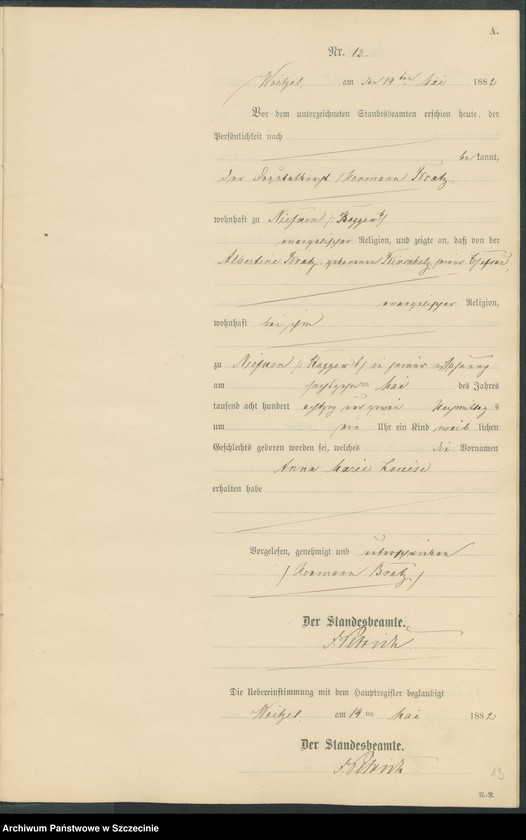 A.
Nr. 13.
Weitzel, am den 19ten Mai 1882
Vor dem unterzeichneten Standesbeamten erschien heute, der
Persönlichkeit nach
bekannt,
der Hermann Bratz
wohnhaft zu
evangelischer Religion, und zeigte an, daß von der
Albertine Bratz geborenen seiner Ehefrau,
evangelischer Religion,
wohnhaft bei ihm
zu in seiner Wohnung
am ten Mai des Jahres
tausend acht hundert achtzig und zwei Nachmittags
um Uhr ein Kind weiblichen
Geschlechts geboren worden sei, welches die Vornamen
Anna Marie Louise
erhalten habe
Vorgelesen, genehmigt und unterschrieben
(Hermann Bratz)
Der Standesbeamte.
Die Uebereinstimmung mit dem Hauptregister beglaubigt
Weitzel, am 19ten Mai 1882
Der Standesbeamte.
13
N.-R.
Archiwum Państwowe w Szczecinie